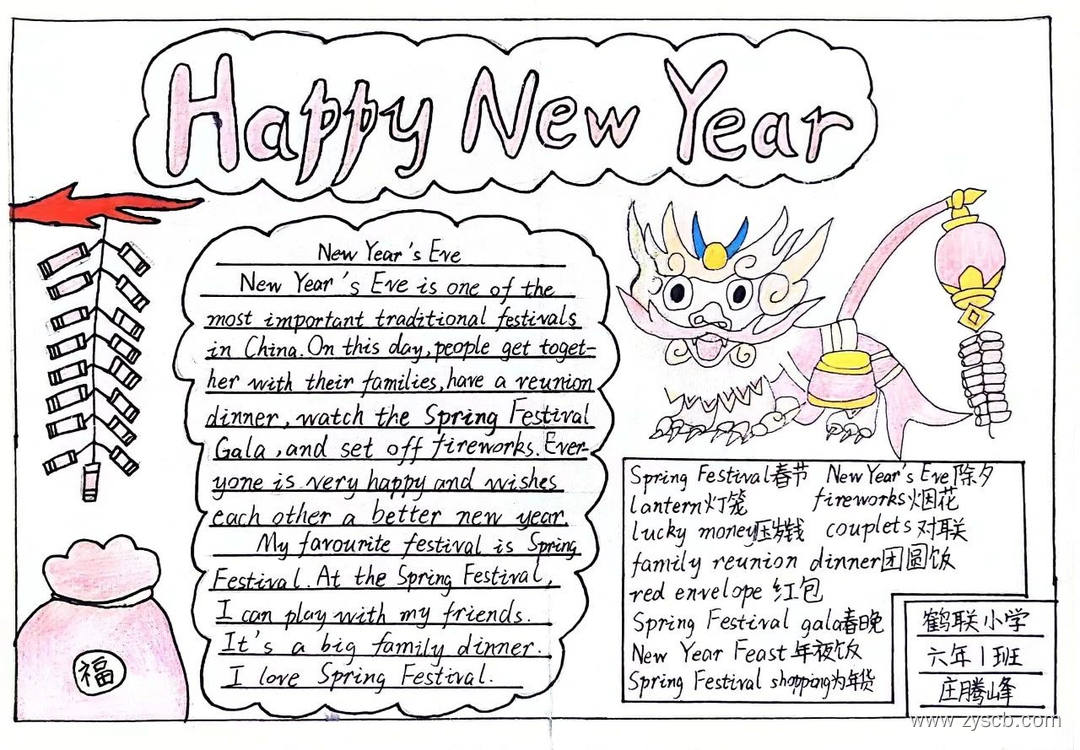 Happy New Year
New Year's Eve
New Year's Eve is one of the
most important traditional festivals
in China. On this day, people get toget-
her with their families, have a reunion
dinner, watch the Spring Festival
Gala, and set off fireworks. Ever-
yone is very happy and wishes
each other a better new year.
My favourite festival is Spring
Festival. At the Spring Festival,
I can play with my friends.
It's a big family dinner.
I love Spring Festival.
福
Spring Festival春节 New Year's Eve除夕
lantern灯笼 fireworks烟花
lucky money压岁钱 couplets对联
family reunion dinner团圆饭
red envelope 红包
Spring Festival gala春晚
New Year Feast年夜饭
Spring Festival shopping为年货
鹤联小学
六年1班
庄腾峰
www.zyscb.com